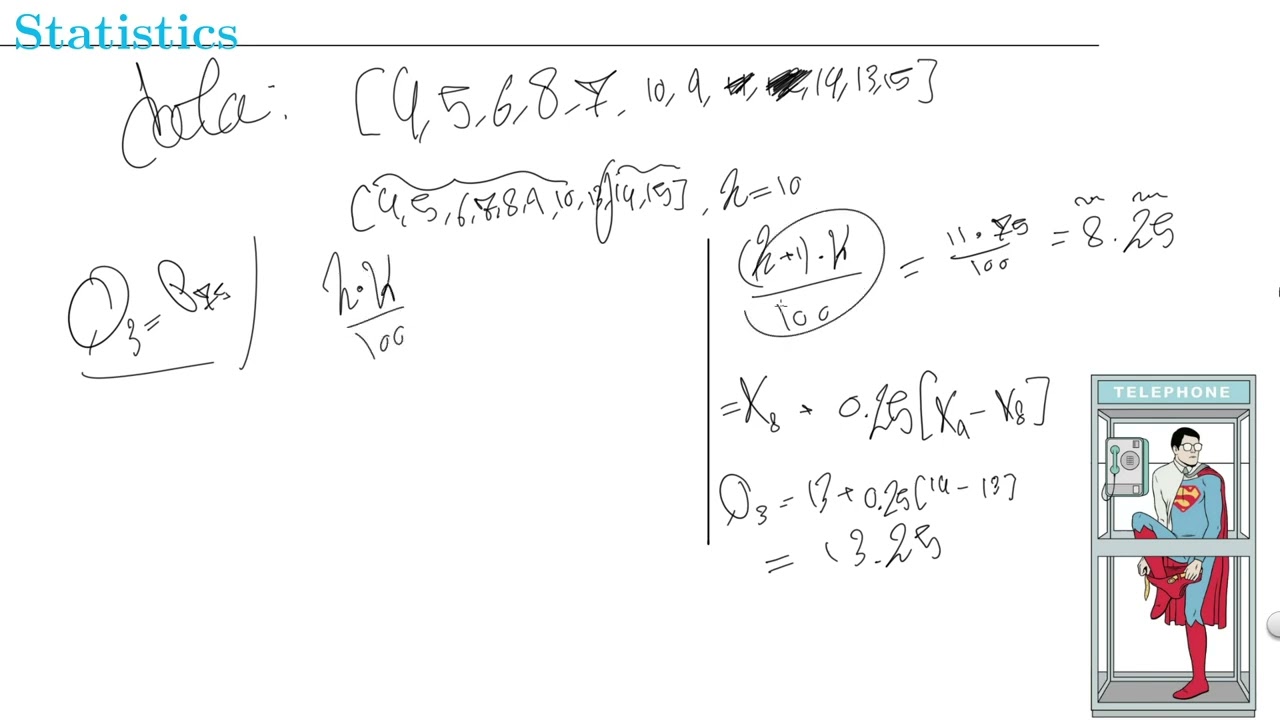 Statistics
Data: [4, 5, 6, 8, 7, 10, 9, 14, 13, 15]
[4, 5, 6, 7, 8, 9, 10, 13, 14, 15], n = 10
Q3 = P75
n·K/100
(n+1)·K/100 = 11·75/100 = 8.25
= X8 + 0.25[X9 - X8]
Q3 = 13 + 0.25[14 - 13]
= 13.25
TELEPHONE